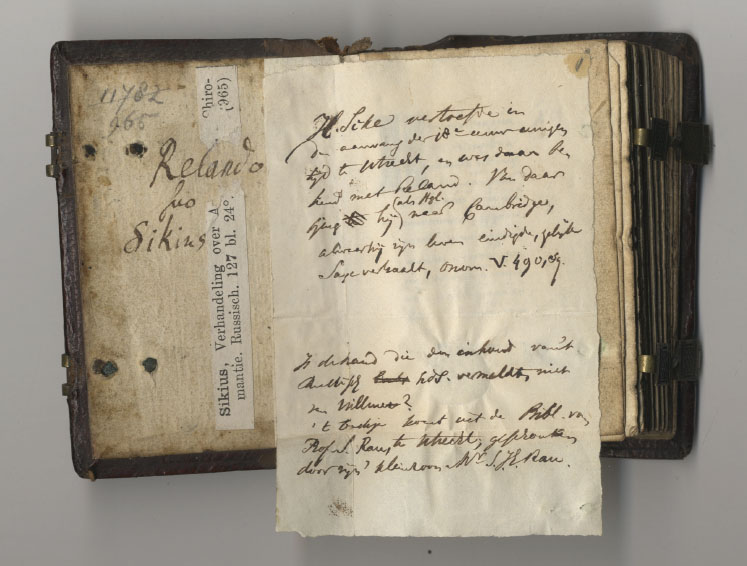 11782
965
Relando
suo
Sikius
Chiro-
(965)
Sikius, Verhandeling over A
mantie. Russisch. 127 bl. 24°.
H. Sike vertoefde in
den aanvang der 18e eeuw eenigen
tijd te Utrecht, en was daar be
kend met Reland. Van daar
(als Hgl.
ging hij) naar Cambridge,
alwaar hij zijn leven eindigde, gelijk
Saxe verhaalt, Onom. V. 490, sq.
Is de hand die den inhoud van 't
hds. vermeldt, niet
van Willmet?
't boekje komt uit de Bibl. van
Prof. S. Rau te Utrecht, geschonken
door zijn' kleinzoon Mr. S. J. E. Rau.